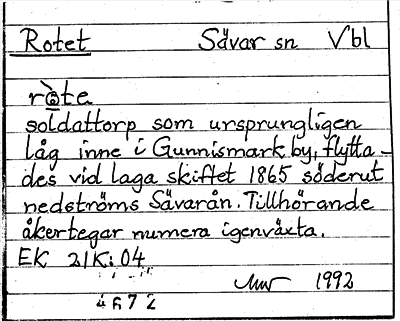 Rotet Sävar sn Vbl
ròte
soldattorp som ursprungligen
låg inne i Gunnismark by, flytta-
des vid laga skiftet 1865 söderut
nedströms Sävarån. Tillhörande
åkertegar numera igenväxta.
EK 21K:04
1992
4672